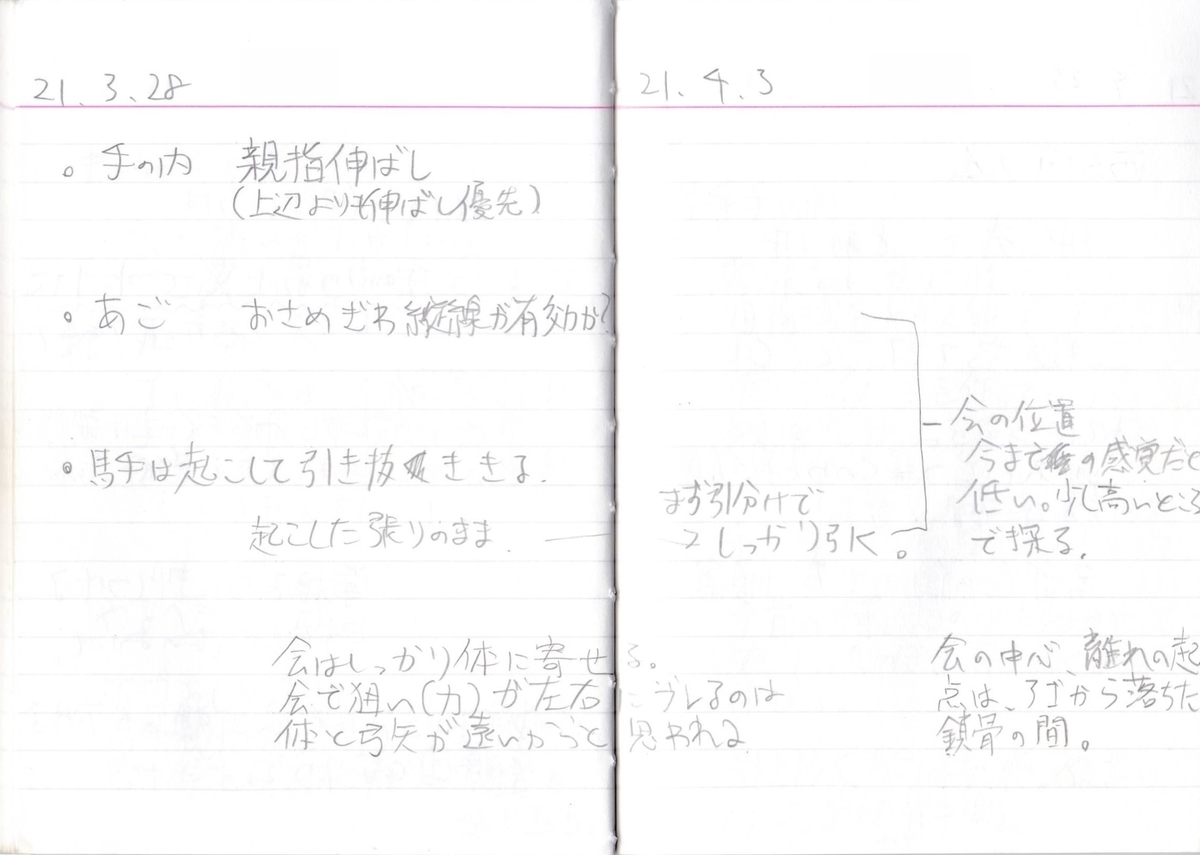 21.3.28
。手の内 親指伸ばし
(上辺よりも伸ばし優先)
。あご おさめぎわ縦線が有効か?
。馬手は起こして引き抜ききる.
起こした張りのまま.
会はしっかり体に寄せる。
会で狙い(力)が左右にブレるのは
体と弓矢が遠いからと思われる
21.4.3
まず引分けで
しっかり引く。
会の位置
今までの感覚だと
低い。少し高いところ
で探る.
会の中心、離れの起
点は、アゴから落ちた
鎖骨の間。